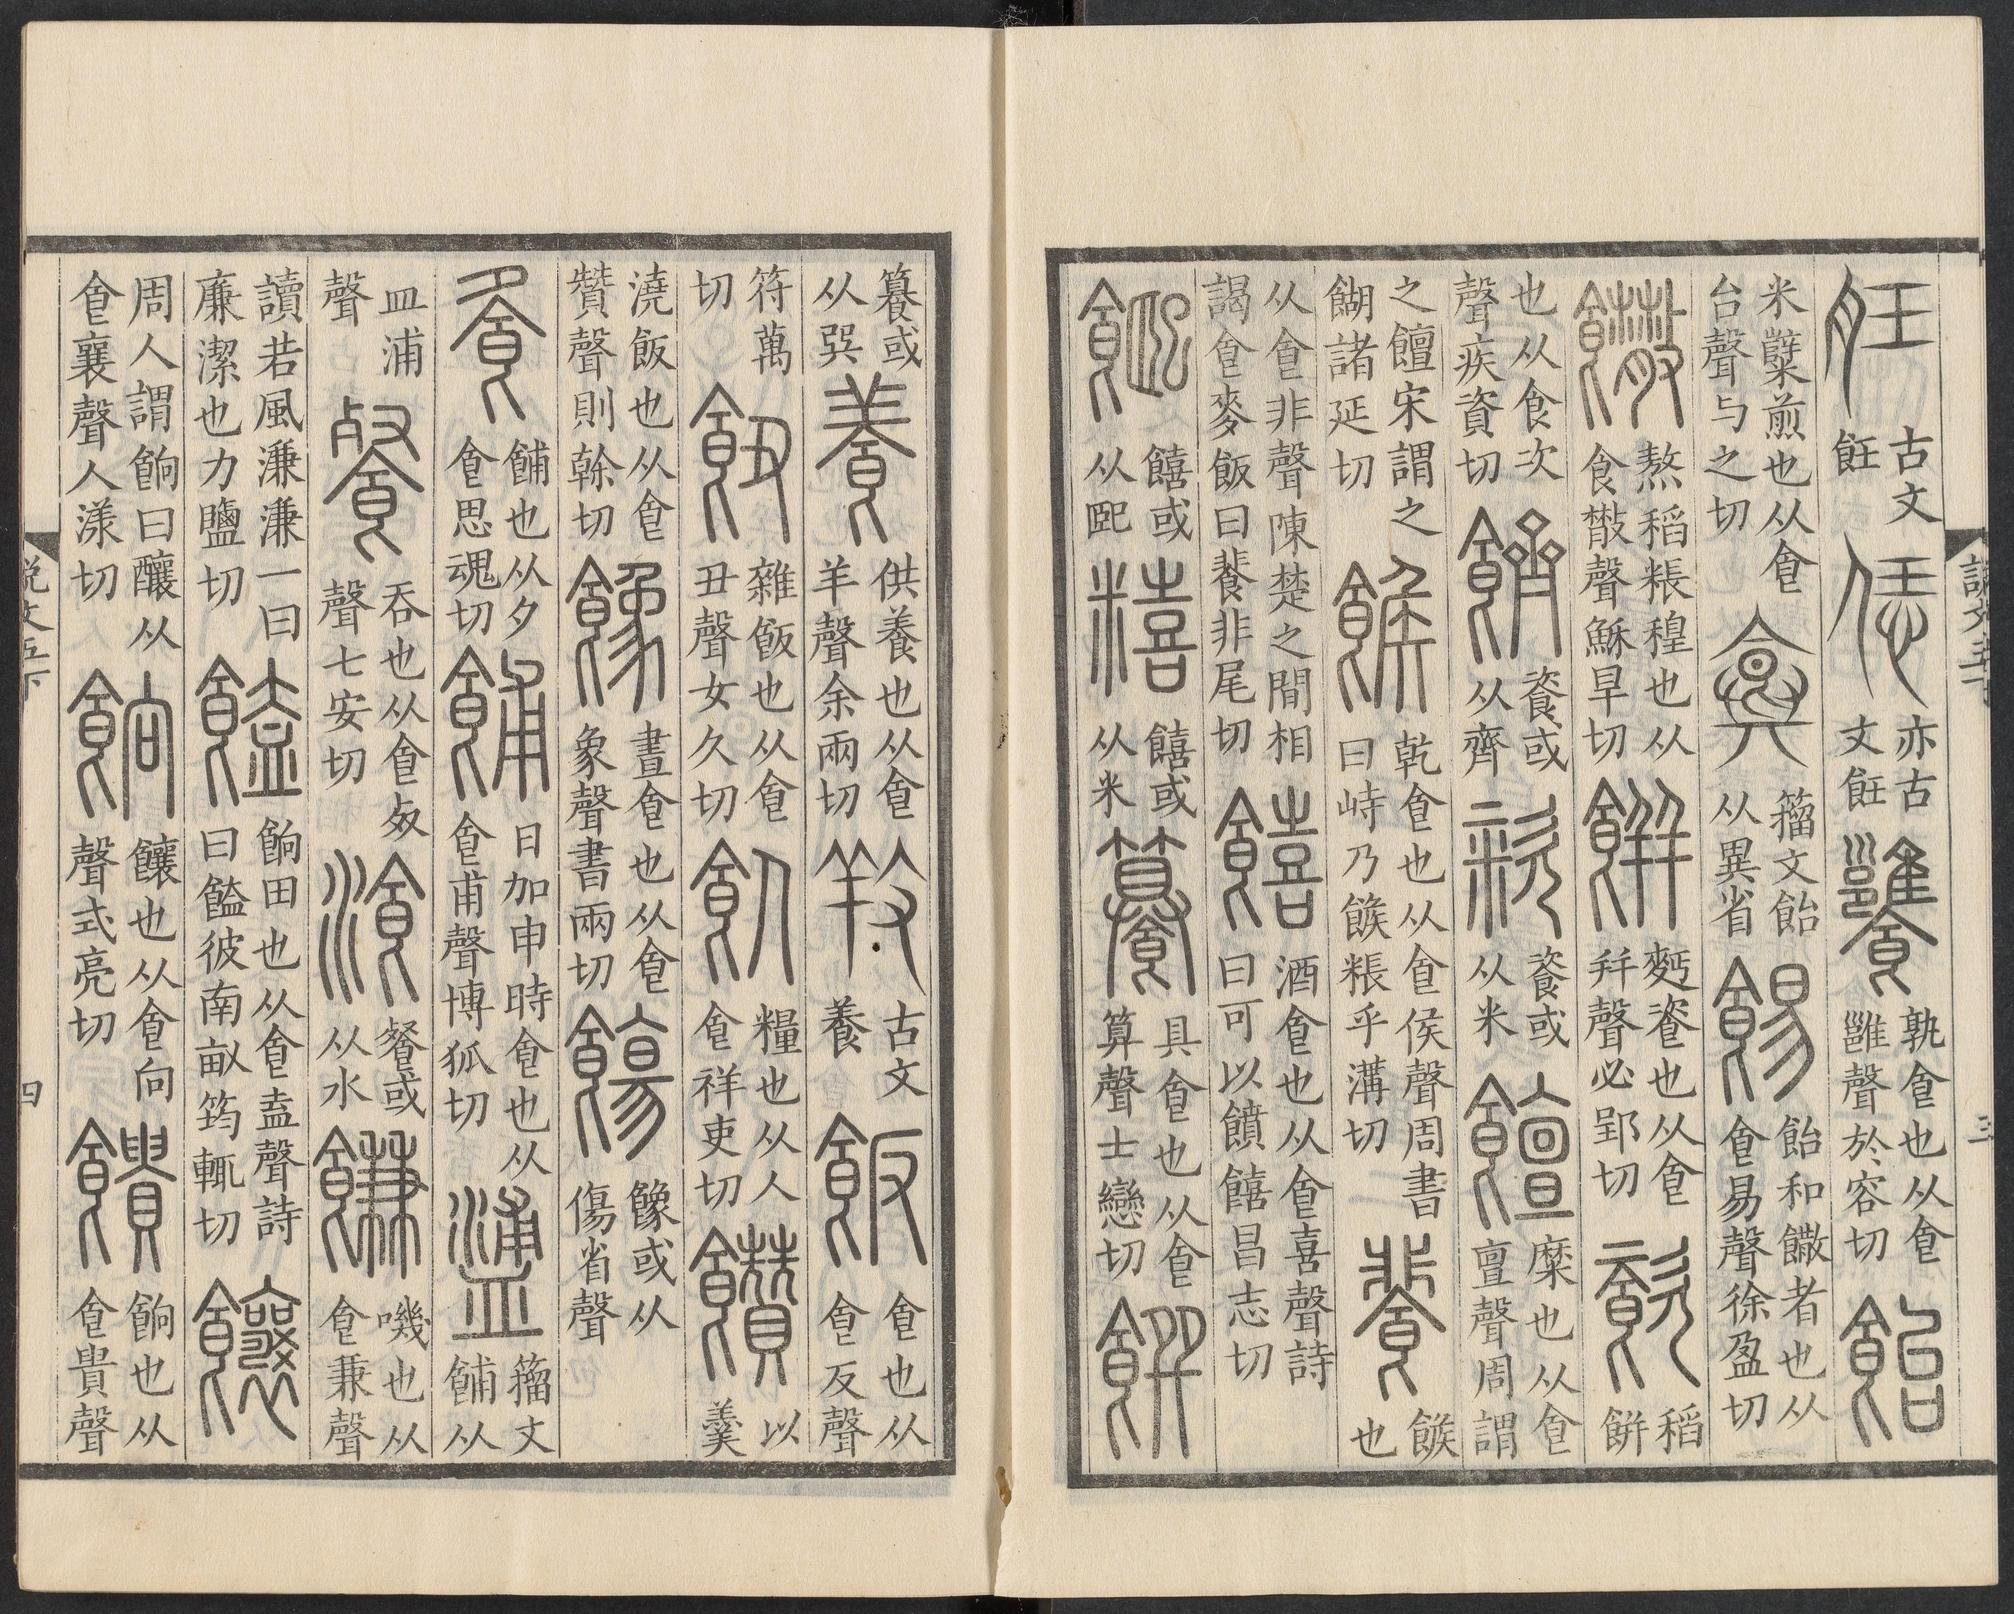 古文飪恁亦古文飪饔孰食也从食雝聲於容切飴
米糱煎也从食台聲与之切籒文飴从異省餳飴和饊者也从食昜聲徐盈切
饊熬稻粻䅣也从食㪔聲穌旱切餅麪餈也从食幷聲必郢切餈稻餅
也从食次聲疾資切䭣餈或从齊粢餈或从米饘糜也从食亶聲周謂
之饘宋謂之餬諸延切餱乾食也从食侯聲周書曰峙乃餱粻乎溝切餥餱也
从食非聲陳楚之間相謁食麥飯曰餥非尾切饎酒食也从食喜聲詩曰可以饙饎昌志切
饎或从巸糦饎或从米籑具食也从食算聲士戀切餠
說文五下
三
籑或从巽養供養也从食羊聲余兩切羖古文養飯食也从食反聲
符萬切飪雜飯也从食丑聲女久切飤糧也从人食祥吏切饡以羹
澆飯也从食贊聲則榦切餯晝食也从食象聲書兩切餳餯或从傷省聲
飧餔也从夕食思魂切餔日加申時食也从食甫聲博狐切籒文餔从
皿浦聲餐吞也从食𣦼聲七安切湌餐或从水䭑嘰也从食兼聲
讀若風溓溓一曰廉潔也力鹽切饁餉田也从食盍聲詩曰饁彼南畝筠輒切饟
周人謂餉曰饟从食襄聲人漾切餉饟也从食向聲式亮切饋餉也从食貴聲
說文五下
四